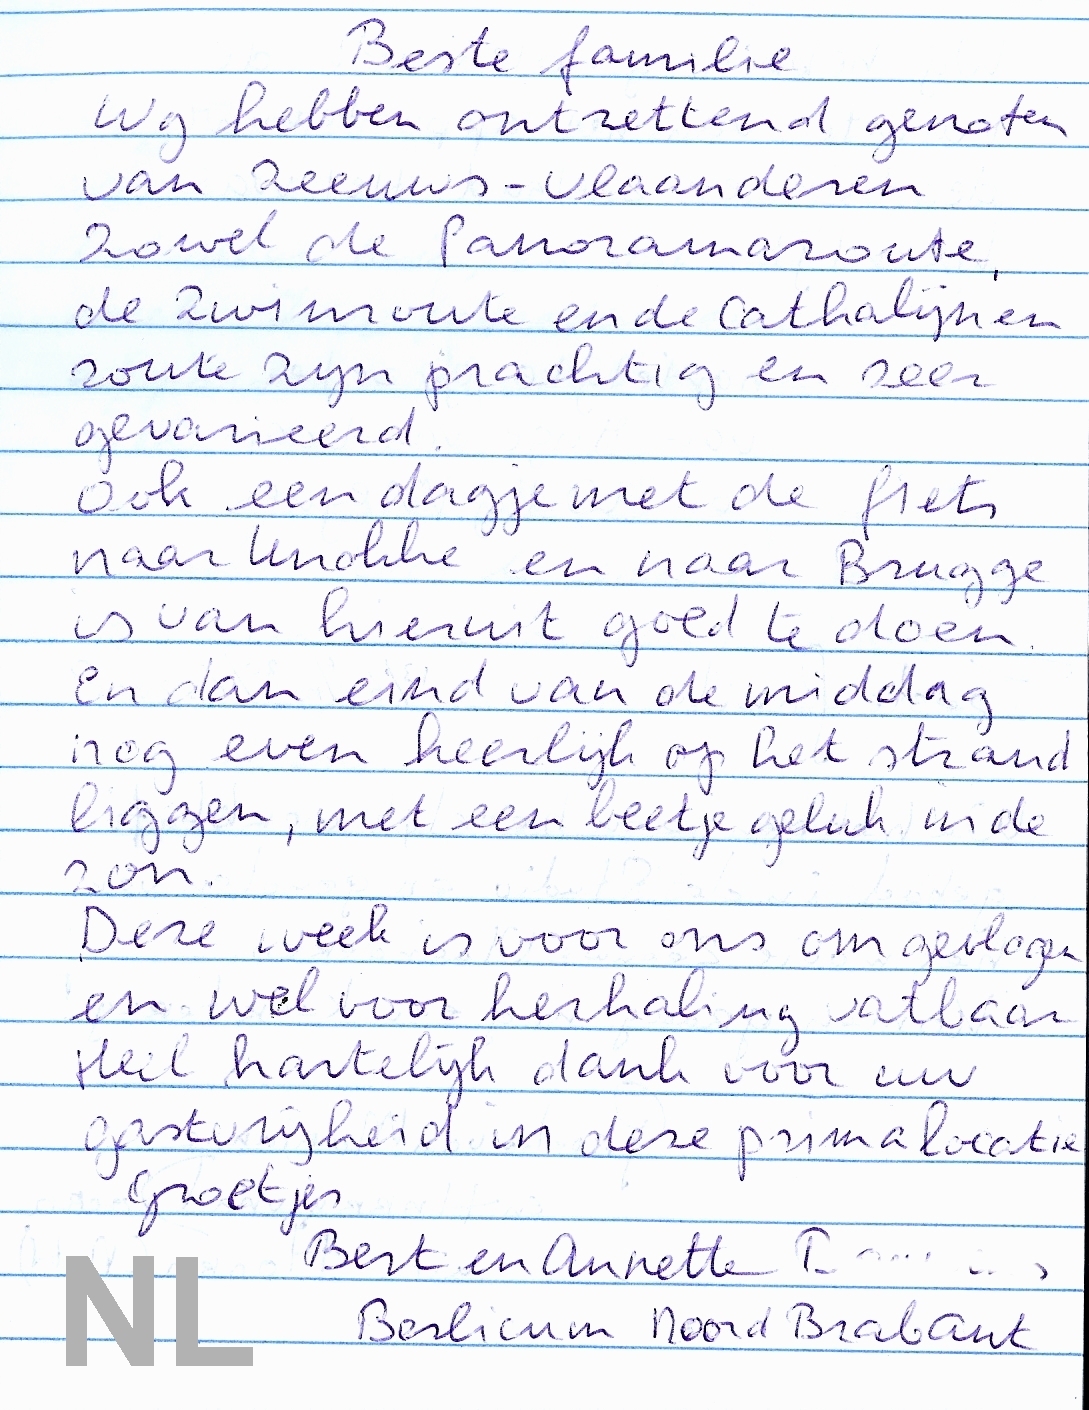 Beste familie
Wy hebben ontzettend genoten
van Zeeuws-vlaanderen
Zowel de Panoramaroute,
de Zwinroute en de Cathalijnen
route zyn prachtig en zeer
gevarieerd.
Ook een dagje met de fiets
naar Knokke en naar Brugge
is van hieruit goed te doen.
En dan eind van de middag
nog even heerlijk op het strand
liggen, met een beetje geluk in de
zon.
Deze week is voor ons omgevlogen
en wel voor herhaling vatbaar
Heel hartelijk dank voor uw
gastvrijheid in deze prima locatie
Groetjes
Bert en Annette T
Berlicum Noord Brabant
NL